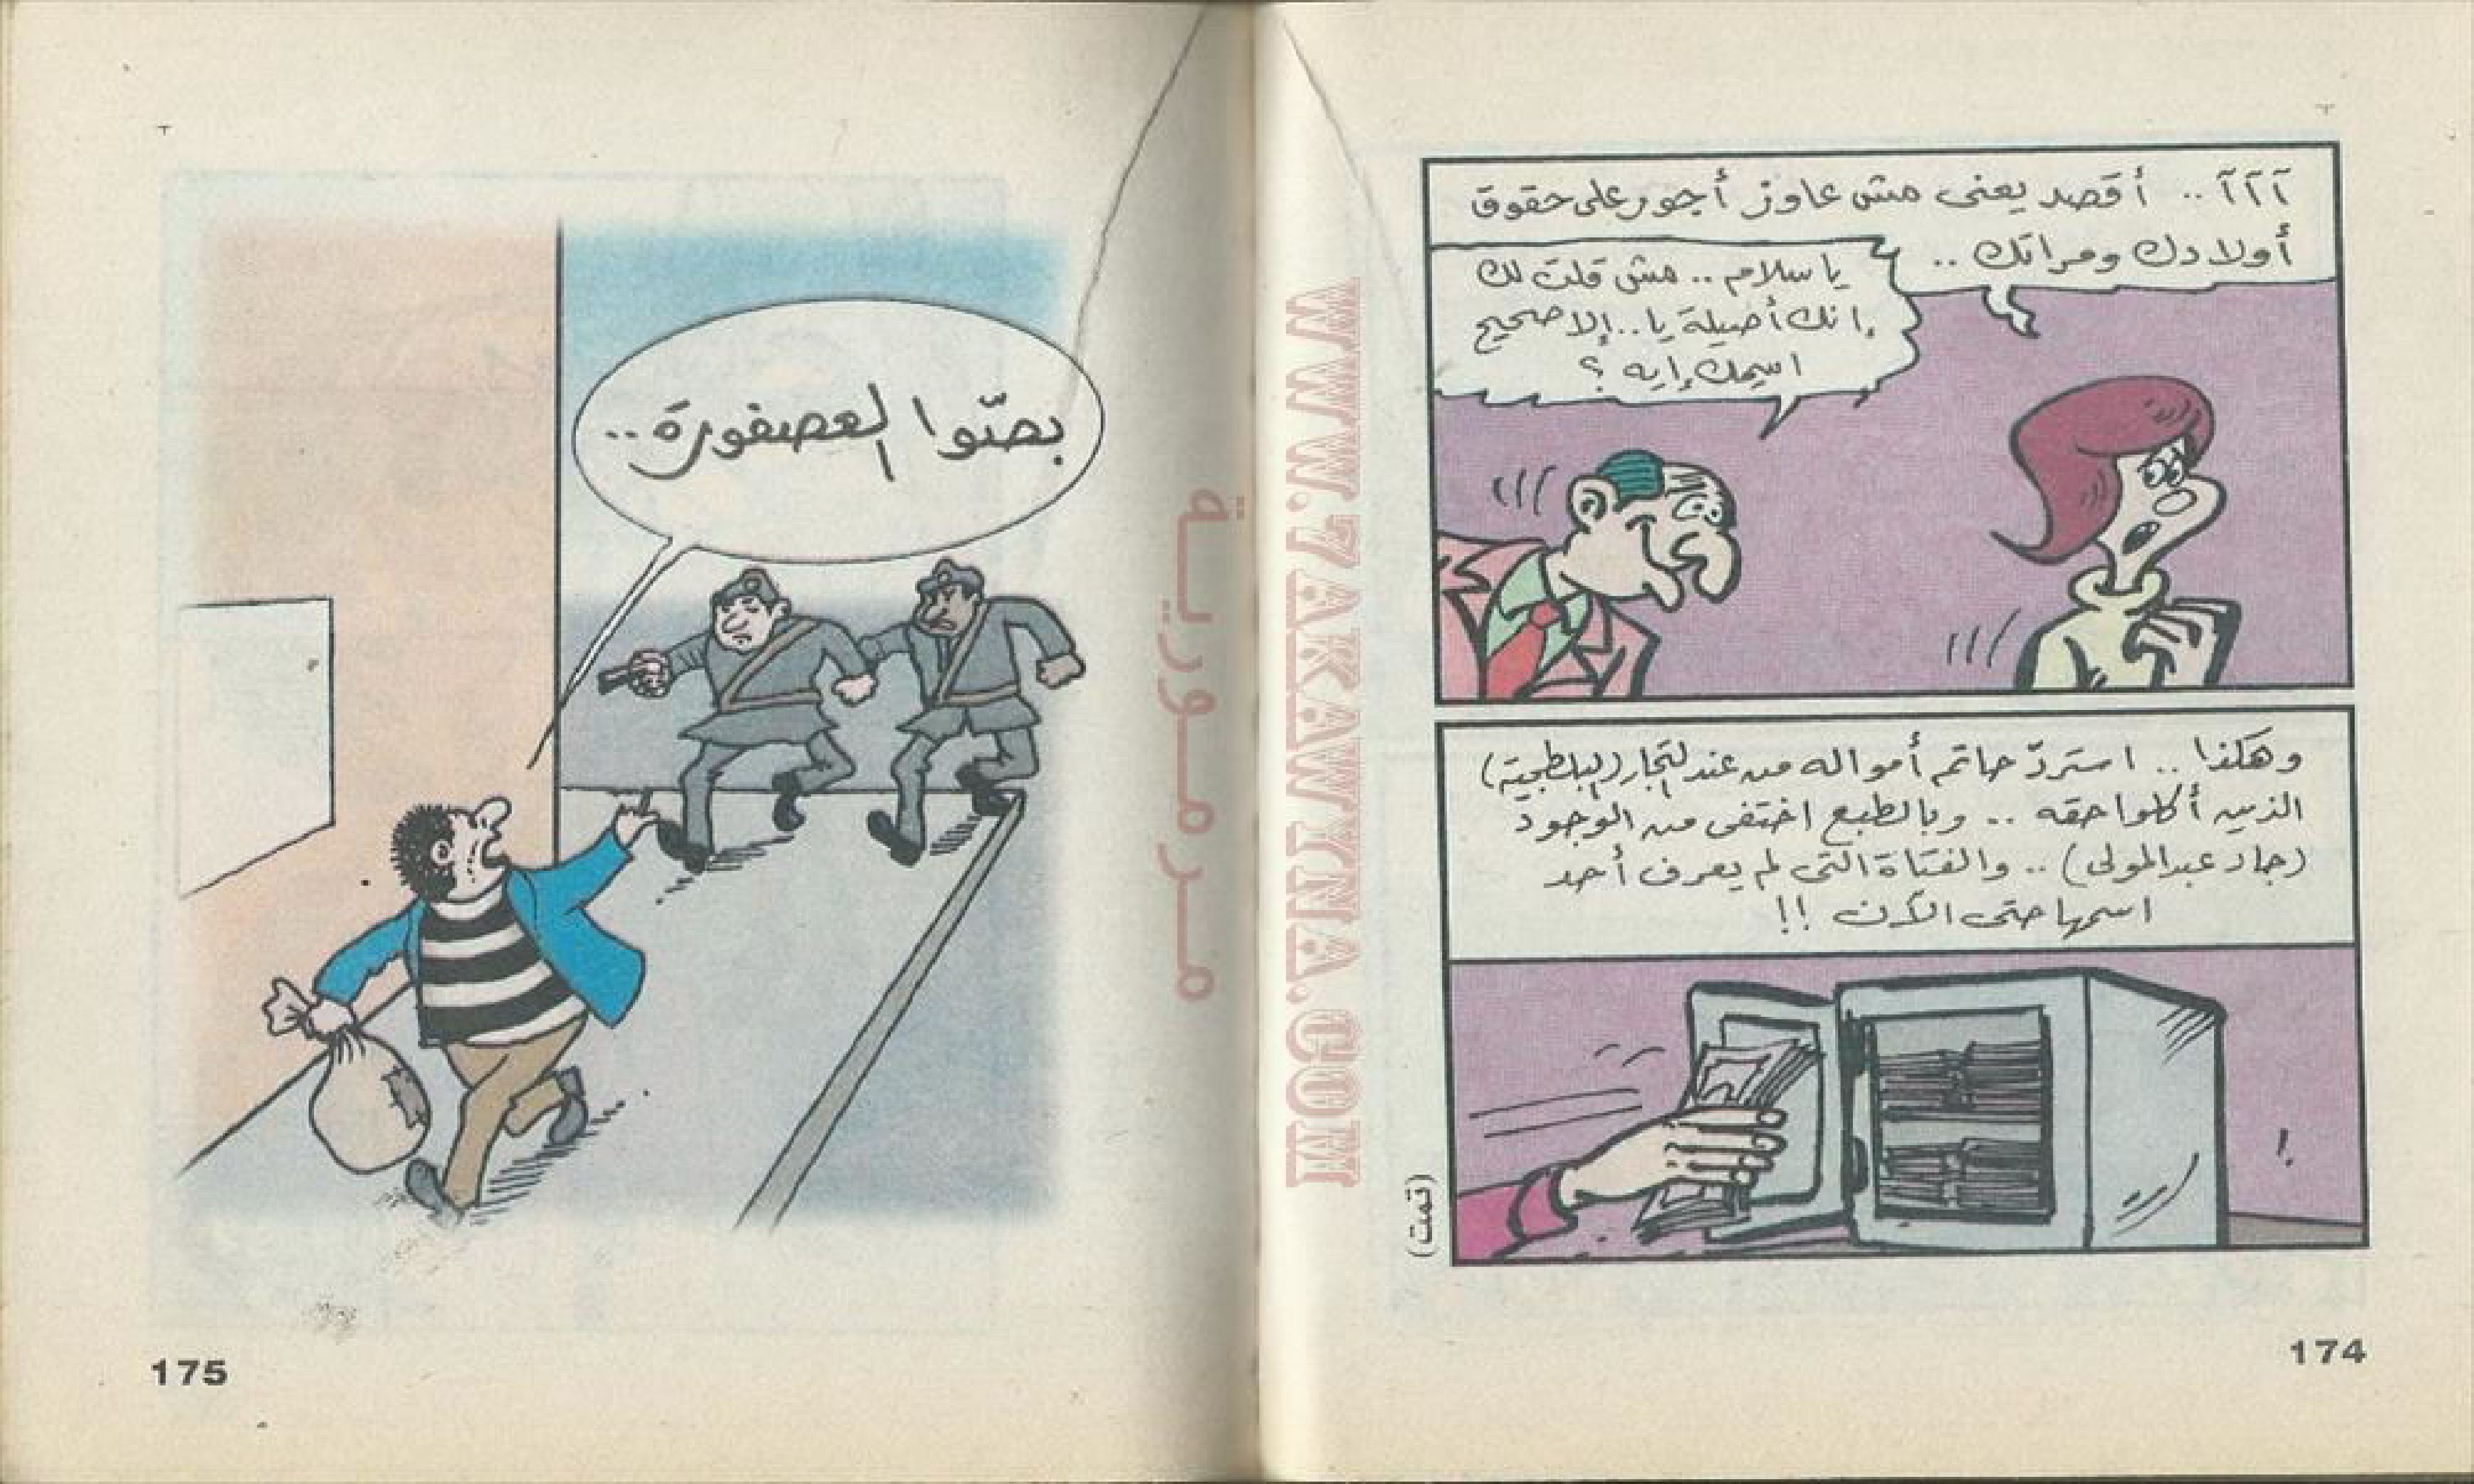 آآآ .. أقصد يعنى مش عاوز أجور على حقوق
أولادك ومراتك ..
ياسلام .. مش قلت لك
إنك أصيلة يا .. إلا صحيح
اسمك إيه ؟
وهكذا .. استردّ حاتم أمواله من عند التجار (البلطجية)
الذين أكلوا حقه .. وبالطبع اختفى من الوجود
(جاد عبد المولى) .. والفتاة التى لم يعرف أحد
اسمها حتى الآن !!
(تمت)
174
WWW.7AKAWWENA.COM
مرمورية
بصّوا العصفورة ..
175